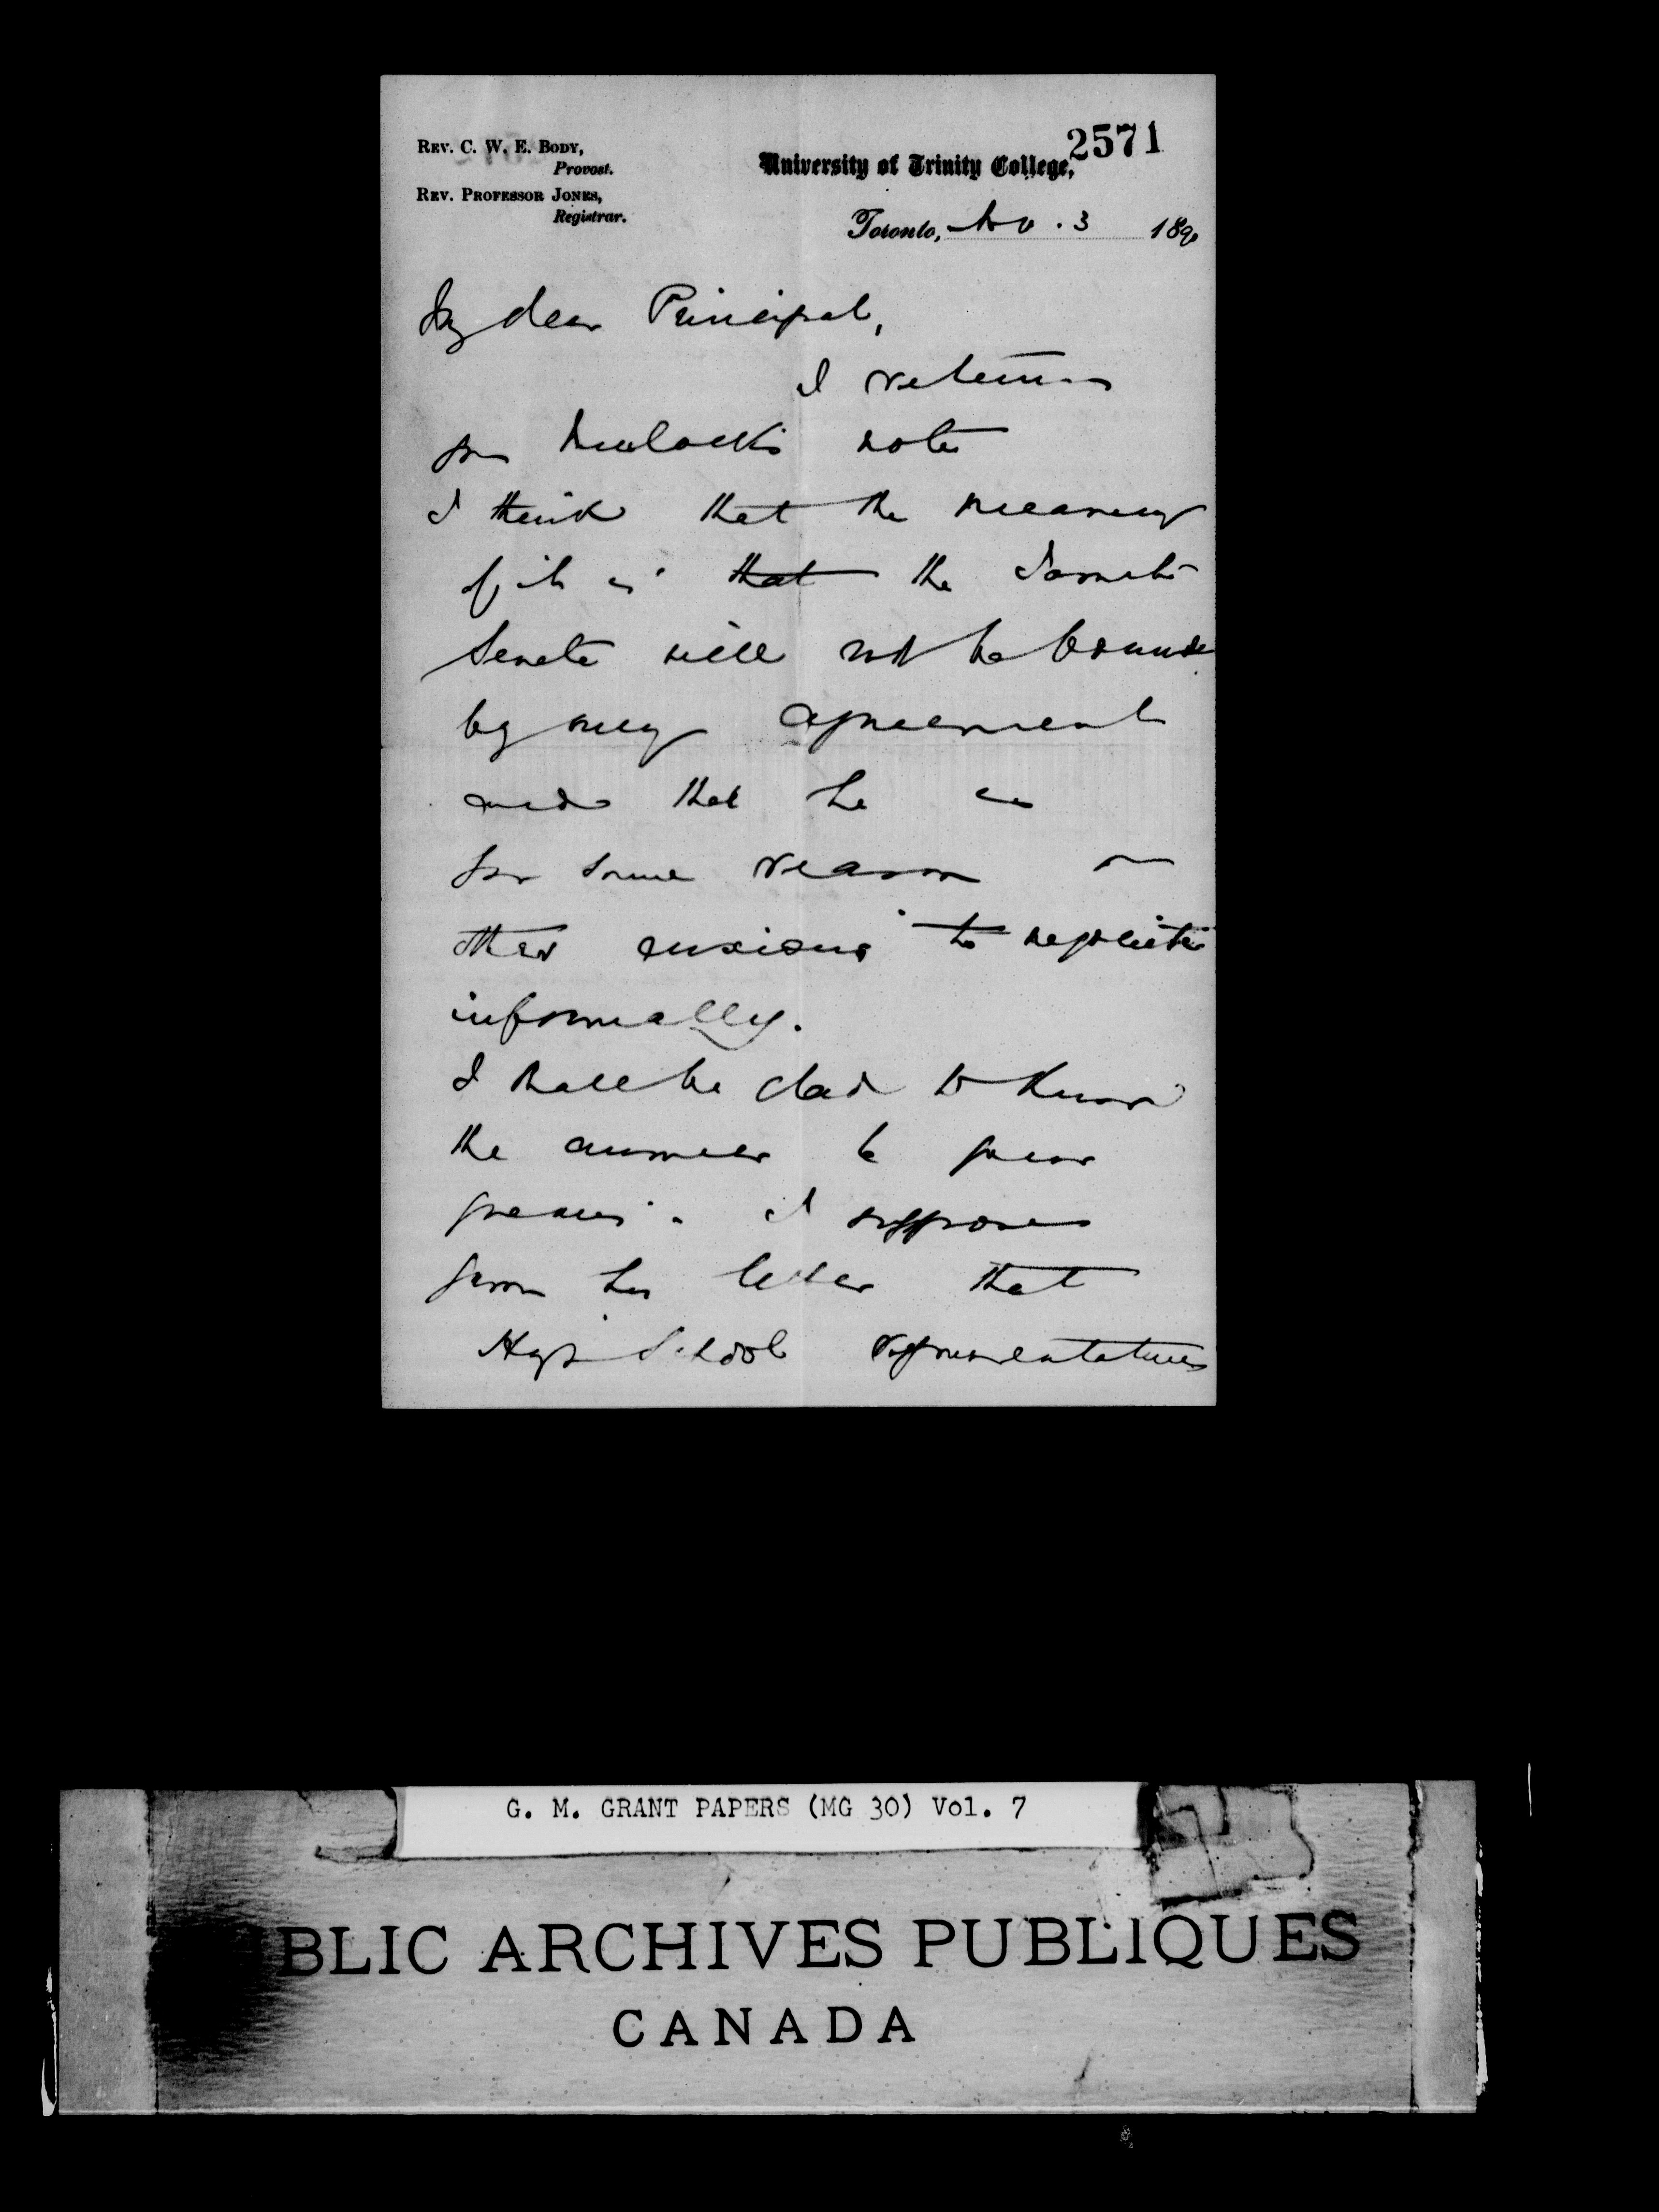 2571
REV. C. W. E. BODY,
Provost.
REV. PROFESSOR JONES,
Registrar.
University of Trinity College,
Toronto, Nov. 3 1890
My dear Principal,
I return
you Mulock's note
I think that the meaning
of it is that the Toronto
Senate will not be bound
by any agreement
and that he is
for some reason or
other anxious to negotiate
informally.
I shall be glad to know
the answer to your
queries. I suppose
from his letter that
High School representatives
G. M. GRANT PAPERS (MG 30) Vol. 7
BLIC ARCHIVES PUBLIQUES
CANADA